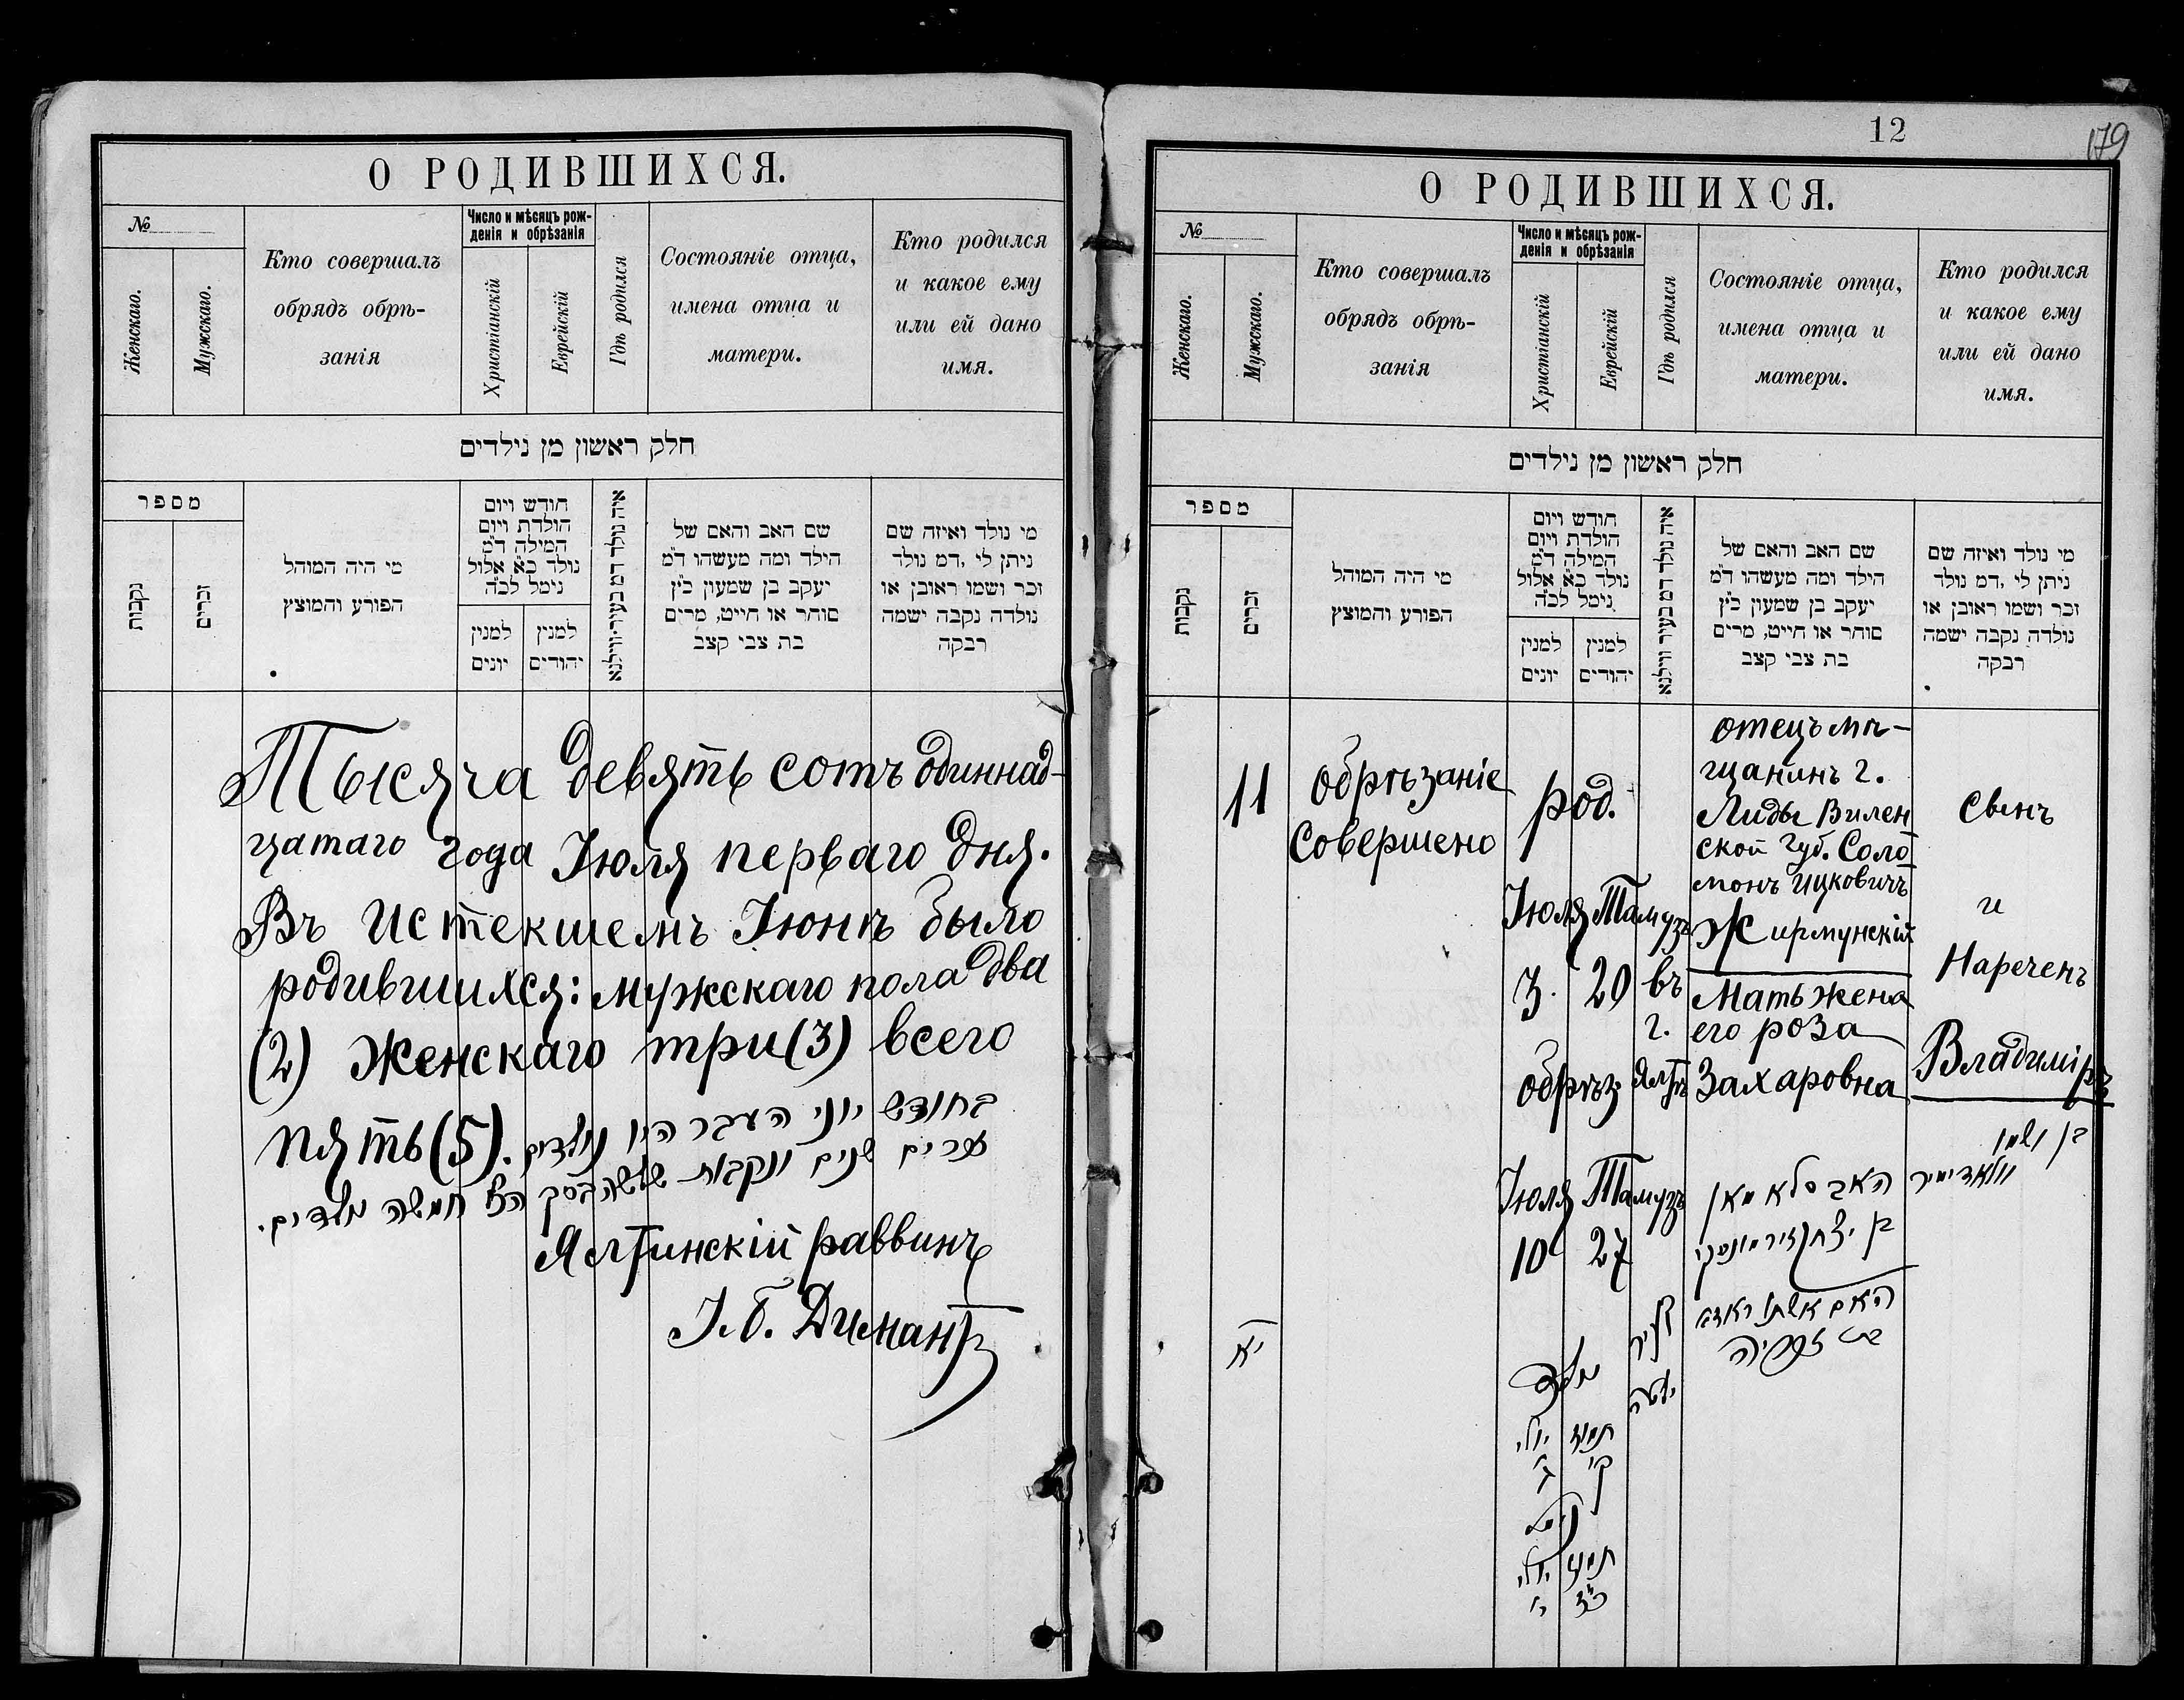 О РОДИВШИХСЯ.
№
Женскаго.
Мужскаго.
Кто совершалъ
обрядъ обрѣ-
занія
Число и мѣсяцъ рож-
денія и обрѣзанія
Христіанскій
Еврейскій
Гдѣ родился
Состояніе отца,
имена отца и
матери.
Кто родился
и какое ему
или ей дано
имя.
חלק ראשון מן נילדים
מספר
נקבות
זכרים
מי היה המוהל
הפורע והמוצץ
חודש ויום
הולדת ויום
המילה ד״מ
נולד כ״א אלול
נימל לכ״ה
למנין
יונים
למנין
יהודים
איה נולד דמ בעיר ווילנא
שם האב והאם של
הילד ומה מעשהו ד״מ
יעקב בן שמעון כ״ץ
סוחר או חייט, מרים
בת צבי קצב
מי נולד ואיזה שם
ניתן לי ,דמ נולד
זכר ושמו ראובן או
נולדה נקבה ישמה
רבקה
Тысяча девять сотъ одиннад-
цатаго года Іюля перваго дня.
Въ истекшемъ Іюнѣ было
родившихся: мужскаго пола два
(2) Женскаго три (3) всего
пять (5).
בחודש יוני העבר היו נולדים
זכרים שנים ונקבות שלשה בסך הכל חמשה נולדים.
Ялтинскій раввинъ
І. Б. Диманъ
12
179
О РОДИВШИХСЯ.
№
Женскаго.
Мужскаго.
Кто совершалъ
обрядъ обрѣ-
занія
Число и мѣсяцъ рож-
денія и обрѣзанія
Христіанскій
Еврейскій
Гдѣ родился
Состояніе отца,
имена отца и
матери.
Кто родился
и какое ему
или ей дано
имя.
חלק ראשון מן נילדים
מספר
נקבות
זכרים
מי היה המוהל
הפורע והמוצץ
חודש ויום
הולדת ויום
המילה ד״מ
נולד כ״א אלול
נימל לכ״ה
למנין
יונים
למנין
יהודים
איה נולד דמ בעיר ווילנא
שם האב והאם של
הילד ומה מעשהו ד״מ
יעקב בן שמעון כ״ץ
סוחר או חייט, מרים
בת צבי קצב
מי נולד ואיזה שם
ניתן לי ,דמ נולד
זכר ושמו ראובן או
נולדה נקבה ישמה
רבקה
11
обрѣзаніе
Совершено
род.
Іюля Тамузъ
3. 20
обрѣз.
Іюля Тамузъ
10 27
въ
г.
Ялтѣ
отецъ мѣ-
щанинъ г.
Лиды Вилен
ской губ. Соло
монъ Ицковичъ
Жирмунскій
Мать жена
его роза
Захаровна
Сынъ
и
Нареченъ
Владиміръ
בן ושמו
וולאדימיר
האב סלאמאן
בן יצחק זירמונסקי
האם אשתו ראזא
בת זכריה
יא
נולד
תמוז יולי
ג׳
נימול
תמוז יולי
כ״ז י׳
בעיר
יאלטה